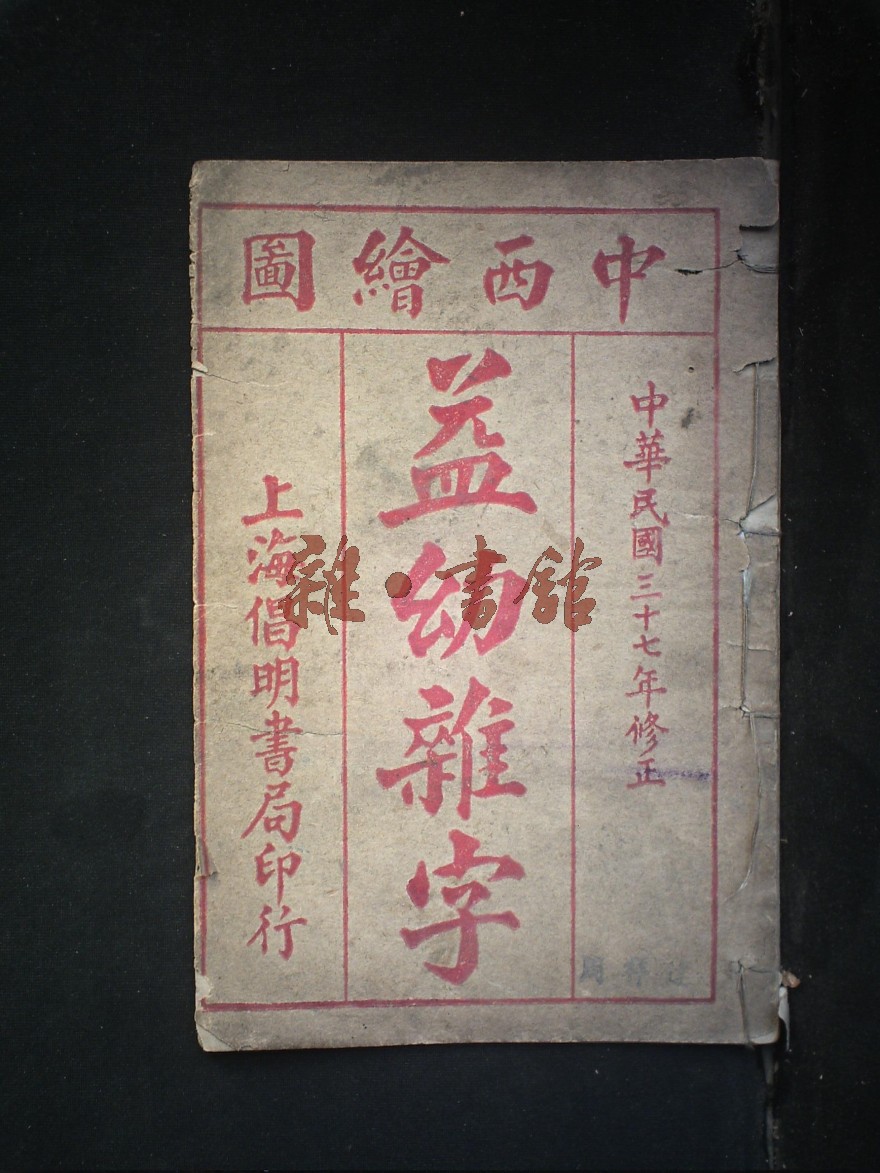 中西繪圖
中華民國三十七年修正
益幼雜字
上海倡明書局印行
雜·書館